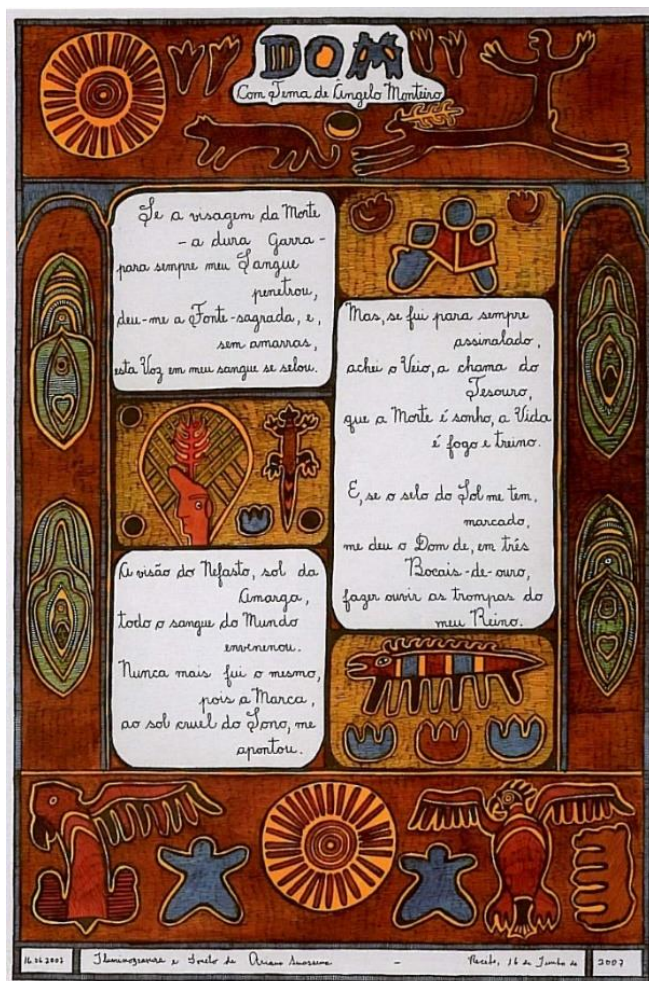 DOM
Com Tema de Ângelo Monteiro
Se a visagem da Morte
- a dura Garra -
para sempre meu Sangue
penetrou,
deu-me a Fonte-sagrada, e,
sem amarras,
esta Voz em meu sangue se selou.
A visão do Nefasto, sol da
Amarga,
todo o sangue do Mundo
envenenou.
Nunca mais fui o mesmo,
pois a Marca,
ao sol cruel do Sono, me
apontou.
Mas, se fui para sempre
assinalado,
achei o Veio, a chama do
Tesouro,
que a Morte é sonho, a Vida
é fogo e treino.
E, se o selo do Sol me tem,
marcado,
me deu o Dom de, em três
Bocais-de-ouro,
fazer ouvir as trompas do
meu Reino.
16.06.2007 Iluminogravura e Soneto de Ariano Suassuna - Recife, 16 de Junho de 2007